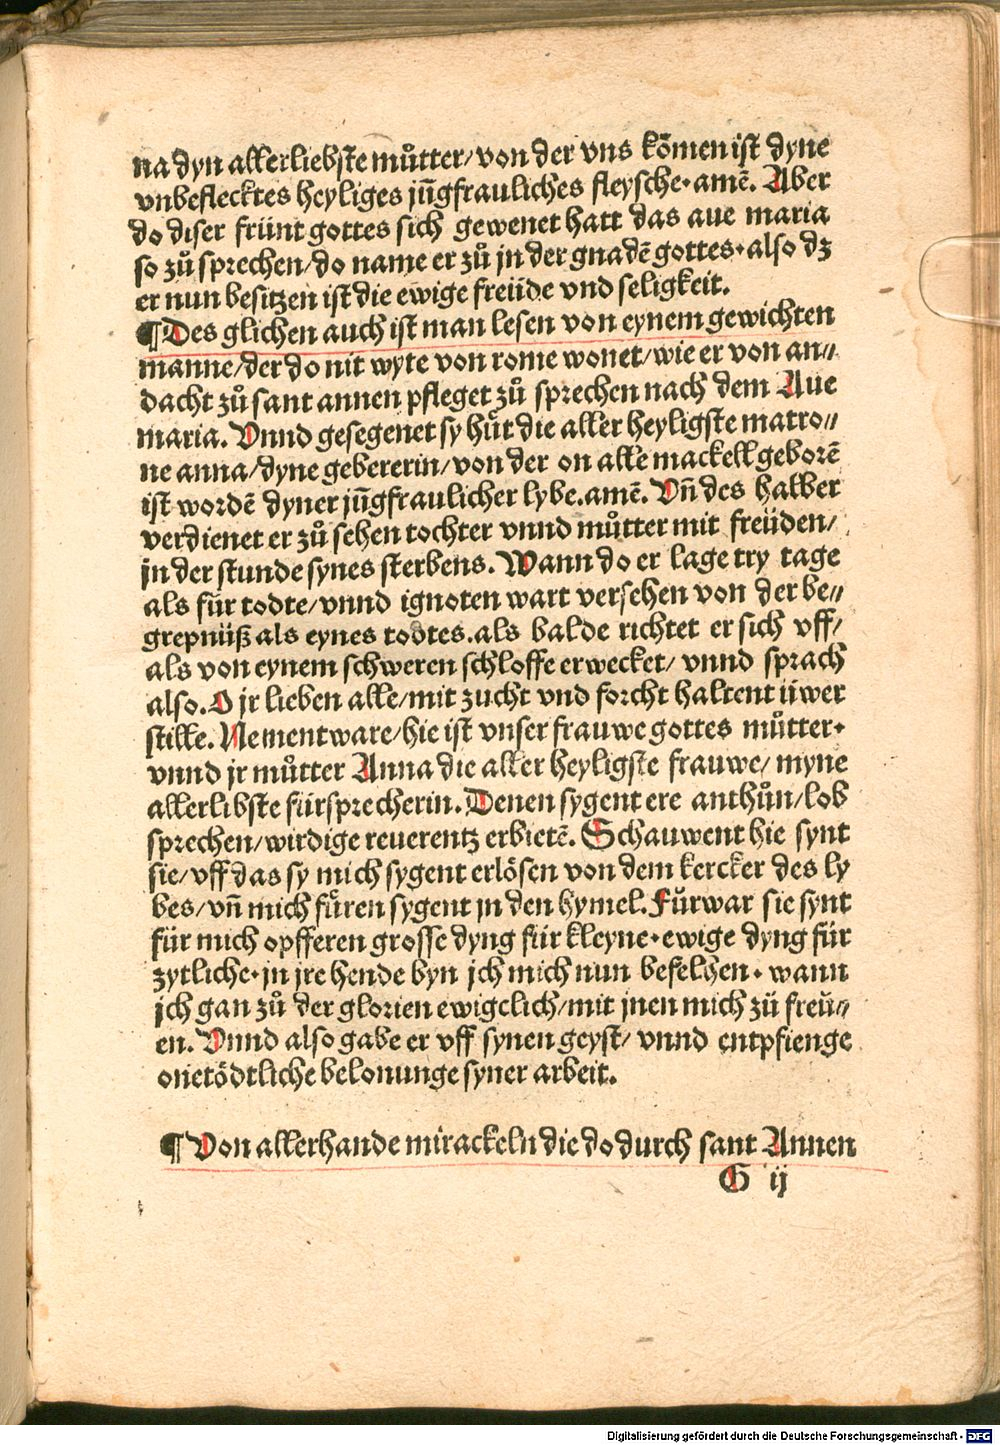 na dyn allerliebste můtter/von der vns kōmen ist dyne
vnbeflecktes heyliges jūgfrauliches fleysche·amē. Aber
do diser frünt gottes sich gewenet hatt das aue maria
so zů sprechen/do name er zů jn der gnadē gottes·also dz
er nun besitzen ist die ewige freüde vnd seligkeit.
¶ Des glichen auch ist man lesen von eynem gewichten
manne/der do nit wyte von rome wonet/wie er von an//
dacht zů sant annen pfleget zů sprechen nach dem Aue
maria. Vnnd gesegenet sy hůt die aller heyligste matro//
ne anna/dyne gebererin/von der on alle mackell geborē
ist wordē dyner jūgfraulicher lybe.amē. Vn̄ des halber
verdienet er zů sehen tochter vnnd můtter mit freüden/
jn der stunde synes sterbens. Wann do er lage try tage
als für todte/vnnd ignoten wart versehen von der be//
grepnüß als eynes todtes.als balde richtet er sich vff/
als von eynem schweren schloffe erwecket/ vnnd sprach
also. O jr lieben alle/mit zucht vnd forcht haltent üwer
stille. Nement ware/hie ist vnser frauwe gottes můtter·
vnnd jr můtter Anna die aller heyligste frauwe/ myne
allerlibste fürsprecherin. Denen sygent ere anthůn/lob
sprechen/wirdige reuerentz erbietē. Schauwent hie synt
sie/vff das sy mich sygent erlösen von dem kercker des ly
bes/vn̄ mich fůren sygent jn den hymel. Fůrwar sie synt
für mich opfferen grosse dyng für kleyne·ewige dyng für
zytliche·jn jre hende byn jch mich nun befelhen· wann
jch gan zů der glorien ewigclich/mit jnen mich zů freü//
en. Vnnd also gabe er vff synen geyst/ vnnd entpfienge
onetödtliche belonunge syner arbeit.
¶ Von allerhande mirackeln die do durch sant Annen
G ij
Digitalisierung gefördert durch die Deutsche Forschungsgemeinschaft - DFG